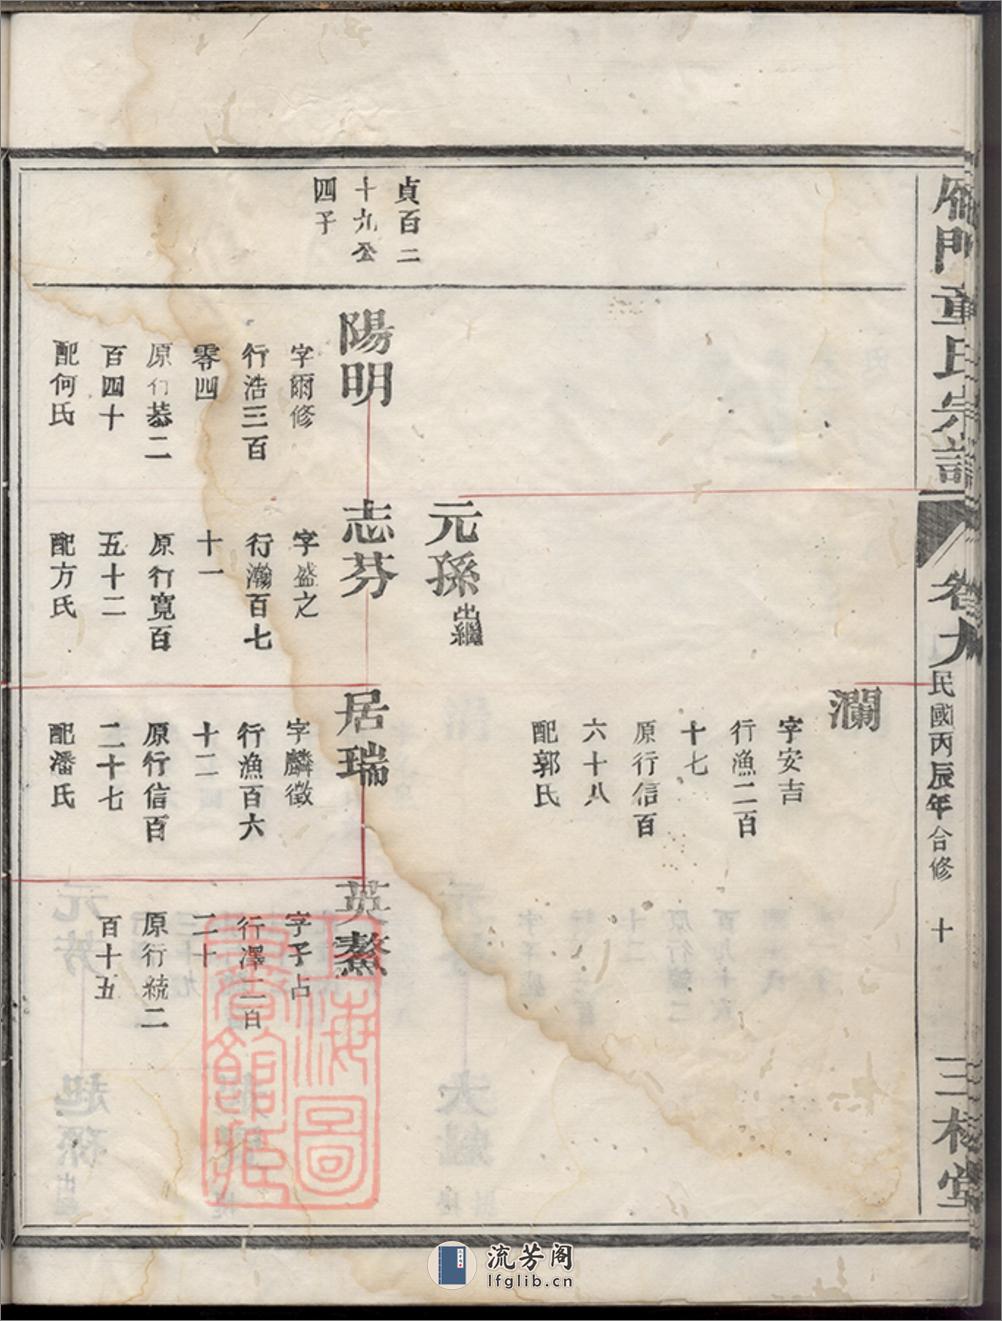 雁門童氏宗譜
卷九
民國丙辰年合修
十
三槐堂
貞百二
十九公
四子
瀾
字安吉
行漁二百
十七
原行信百
六十八
配郭氏
元孫出繼
陽明
字爾修
行浩三百
零四
原行恭二
百四十
配何氏
志芬
字盛之
行瀚百七
十一
原行寬百
五十二
配方氏
居瑞
字麟徵
行漁百六
十二
原行信百
二十七
配潘氏
英鰲
字子占
行澤二百
二十
原行統二
百十五
上海圖書館藏
流芳阁
lfglib.cn